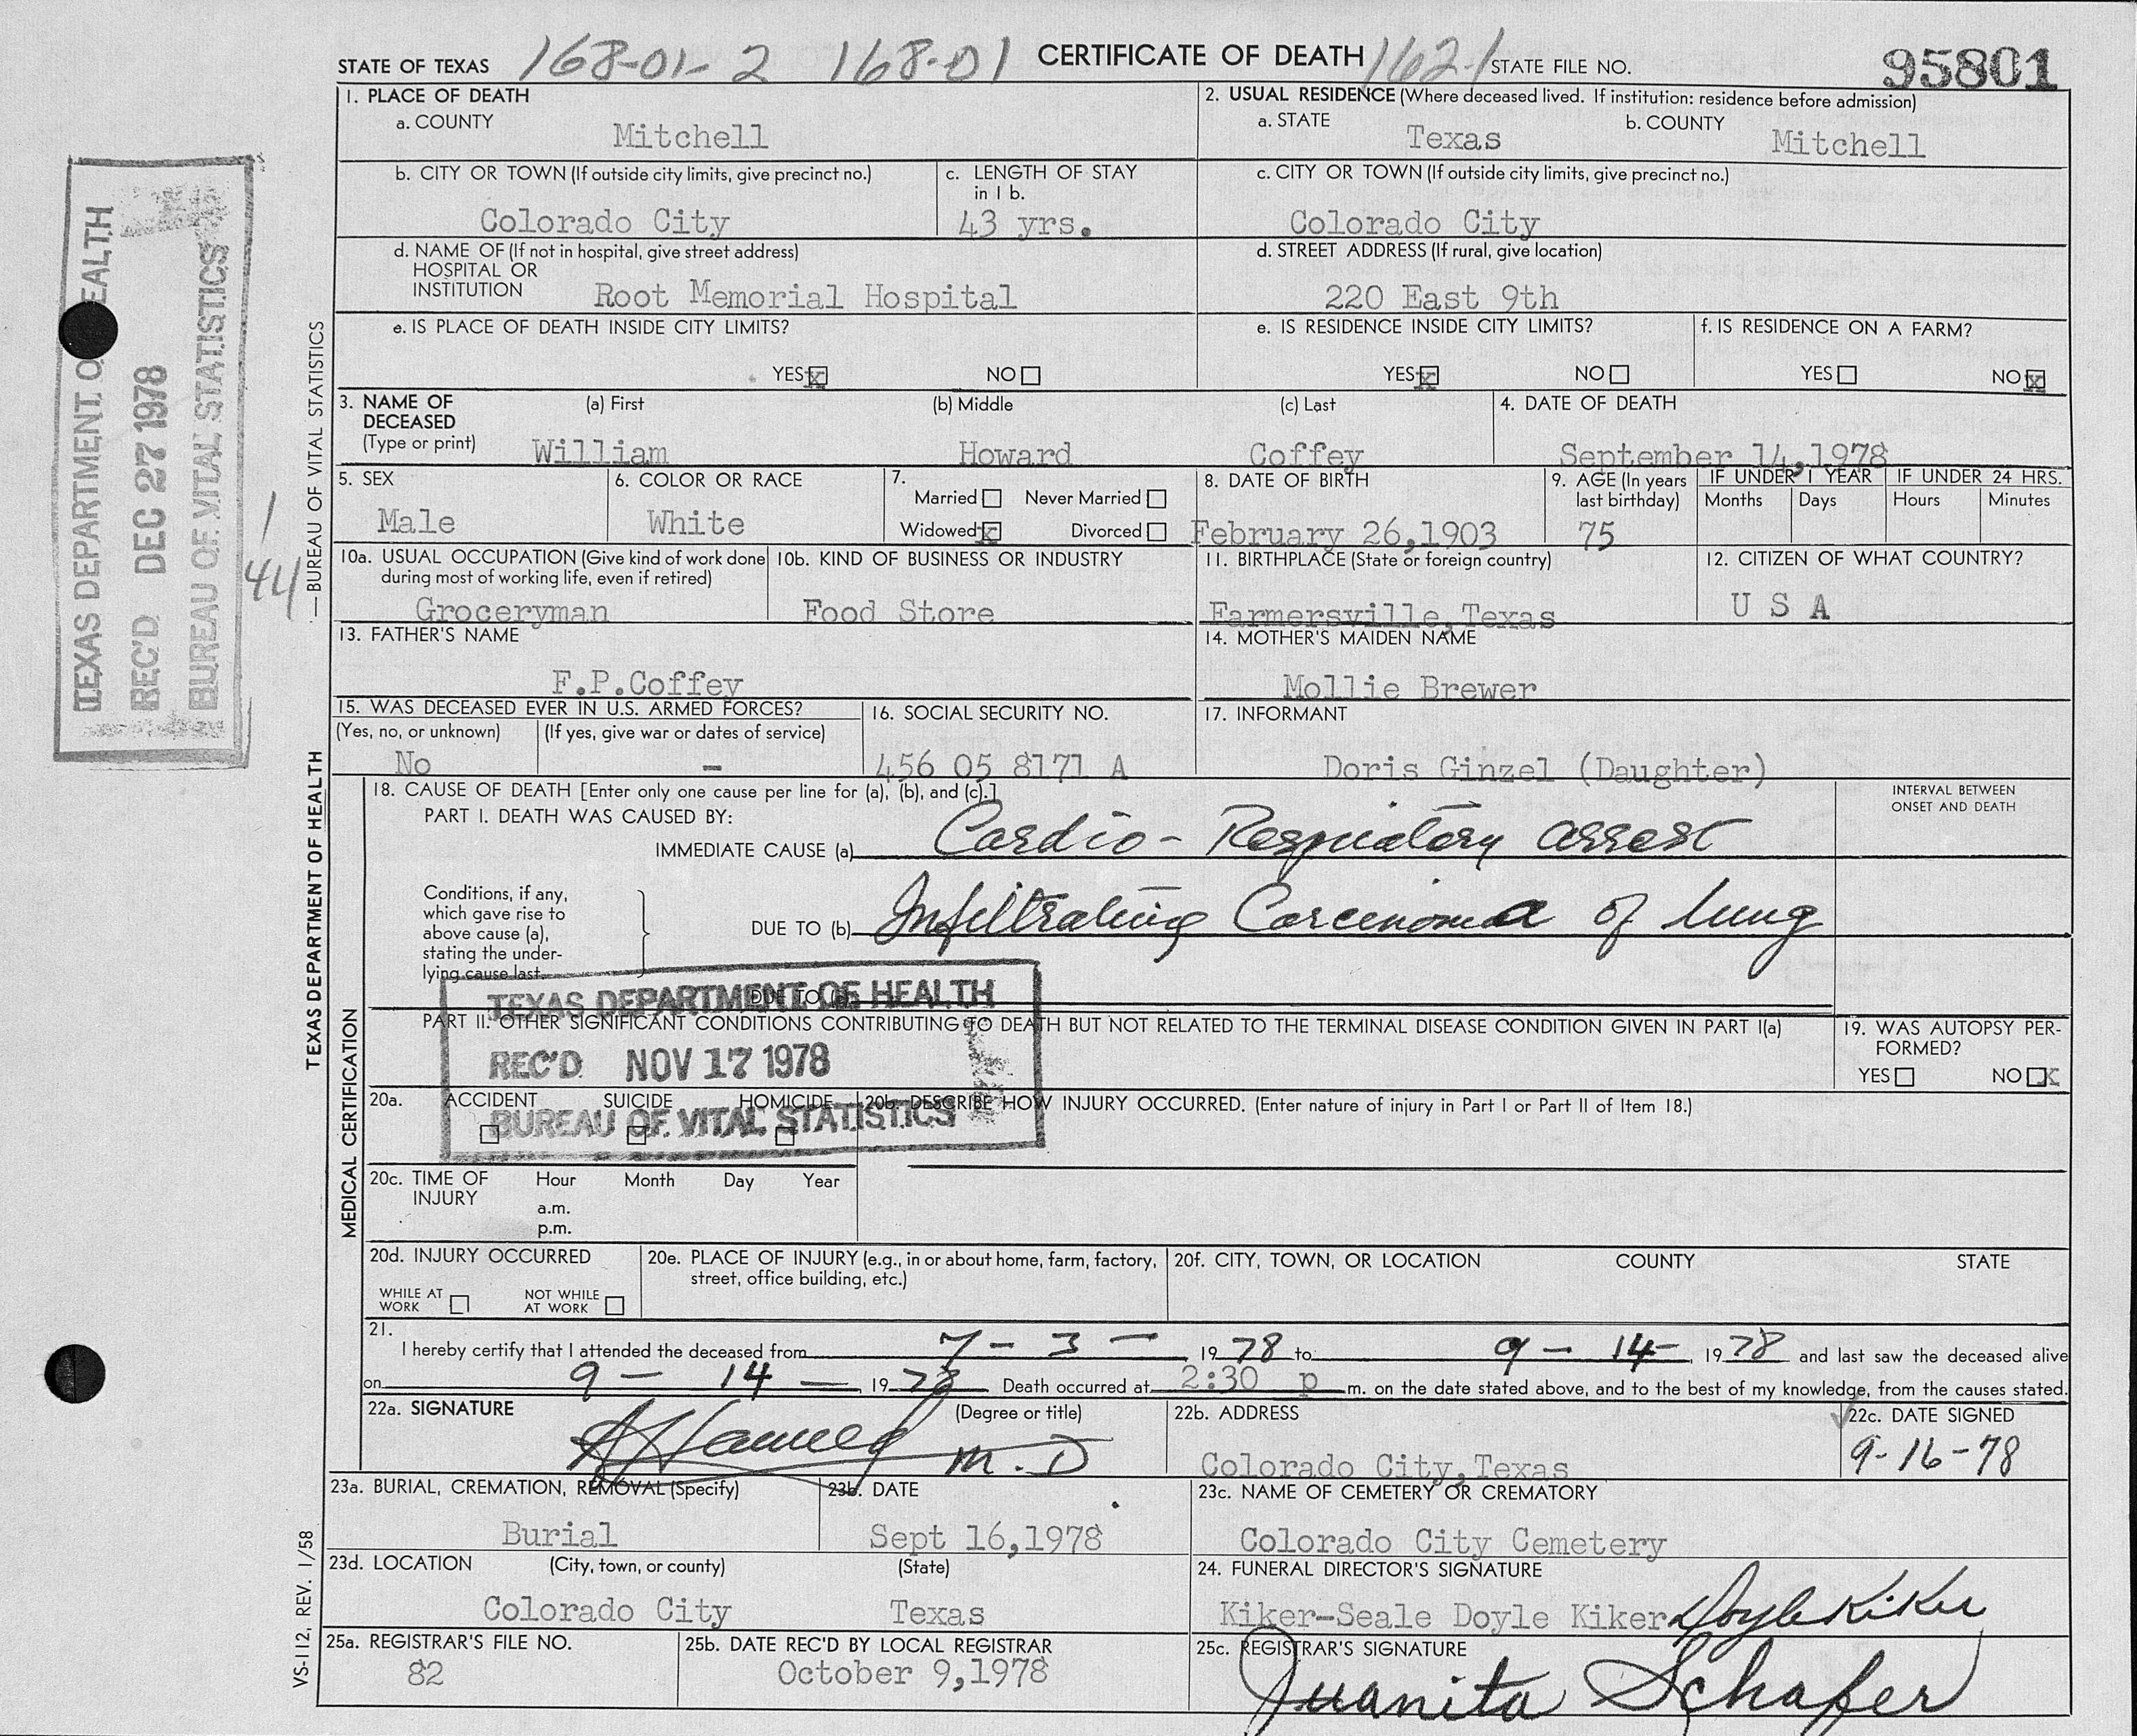 STATE OF TEXAS 168-01-2 168-01 CERTIFICATE OF DEATH 162-1 STATE FILE NO. 95801
1. PLACE OF DEATH
a. COUNTY
Mitchell
2. USUAL RESIDENCE (Where deceased lived. If institution: residence before admission)
a. STATE b. COUNTY
Texas Mitchell
b. CITY OR TOWN (If outside city limits, give precinct no.)
Colorado City
c. LENGTH OF STAY
in 1 b.
43 yrs.
c. CITY OR TOWN (If outside city limits, give precinct no.)
Colorado City
d. NAME OF (If not in hospital, give street address)
HOSPITAL OR
INSTITUTION Root Memorial Hospital
d. STREET ADDRESS (If rural, give location)
220 East 9th
e. IS PLACE OF DEATH INSIDE CITY LIMITS?
YES X NO
e. IS RESIDENCE INSIDE CITY LIMITS?
YES X NO
f. IS RESIDENCE ON A FARM?
YES NO X
3. NAME OF (a) First (b) Middle (c) Last
DECEASED
(Type or print) William Howard Coffey
4. DATE OF DEATH
September 14, 1978
5. SEX
Male
6. COLOR OR RACE
White
7.
Married Never Married
Widowed X Divorced
8. DATE OF BIRTH
February 26, 1903
9. AGE (In years
last birthday)
75
IF UNDER 1 YEAR
Months Days
IF UNDER 24 HRS.
Hours Minutes
10a. USUAL OCCUPATION (Give kind of work done
during most of working life, even if retired)
Groceryman
10b. KIND OF BUSINESS OR INDUSTRY
Food Store
11. BIRTHPLACE (State or foreign country)
Farmersville, Texas
12. CITIZEN OF WHAT COUNTRY?
U S A
13. FATHER'S NAME
F.P.Coffey
14. MOTHER'S MAIDEN NAME
Mollie Brewer
15. WAS DECEASED EVER IN U.S. ARMED FORCES?
(Yes, no, or unknown) (If yes, give war or dates of service)
No -
16. SOCIAL SECURITY NO.
456 05 8171 A
17. INFORMANT
Doris Ginzel (Daughter)
18. CAUSE OF DEATH [Enter only one cause per line for (a), (b), and (c).]
INTERVAL BETWEEN
ONSET AND DEATH
PART I. DEATH WAS CAUSED BY:
IMMEDIATE CAUSE (a) Cardio-Respiratory arrest
Conditions, if any,
which gave rise to
above cause (a),
stating the under-
lying cause last.
DUE TO (b) Infiltrating Carcinoma of lung
DUE TO (c)
PART II. OTHER SIGNIFICANT CONDITIONS CONTRIBUTING TO DEATH BUT NOT RELATED TO THE TERMINAL DISEASE CONDITION GIVEN IN PART I(a)
19. WAS AUTOPSY PER-
FORMED?
YES NO X
TEXAS DEPARTMENT OF HEALTH
REC'D NOV 17 1978
BUREAU OF VITAL STATISTICS
20a. ACCIDENT SUICIDE HOMICIDE
20b. DESCRIBE HOW INJURY OCCURRED. (Enter nature of injury in Part I or Part II of Item 18.)
20c. TIME OF Hour Month Day Year
INJURY
a.m.
p.m.
20d. INJURY OCCURRED
WHILE AT
WORK
NOT WHILE
AT WORK
20e. PLACE OF INJURY (e.g., in or about home, farm, factory,
street, office building, etc.)
20f. CITY, TOWN, OR LOCATION COUNTY STATE
21.
I hereby certify that I attended the deceased from 7 - 3 -, 1978 to 9 - 14 -, 1978 and last saw the deceased alive
on 9 - 14 -, 1978. Death occurred at 2:30 p m. on the date stated above, and to the best of my knowledge, from the causes stated.
22a. SIGNATURE (Degree or title)
M.D
22b. ADDRESS
Colorado City, Texas
22c. DATE SIGNED
9-16-78
23a. BURIAL, CREMATION, REMOVAL (Specify)
Burial
23b. DATE
Sept 16,1978
23c. NAME OF CEMETERY OR CREMATORY
Colorado City Cemetery
23d. LOCATION (City, town, or county) (State)
Colorado City Texas
24. FUNERAL DIRECTOR'S SIGNATURE
Kiker-Seale Doyle Kiker Doyle Kiker
25a. REGISTRAR'S FILE NO.
82
25b. DATE REC'D BY LOCAL REGISTRAR
October 9,1978
25c. REGISTRAR'S SIGNATURE
Juanita Schafer
TEXAS DEPARTMENT OF HEALTH — BUREAU OF VITAL STATISTICS
MEDICAL CERTIFICATION
VS-112, REV. 1/58
TEXAS DEPARTMENT O EALTH
REC'D DEC 27 1978
BUREAU OF VITAL STATISTICS
1
44